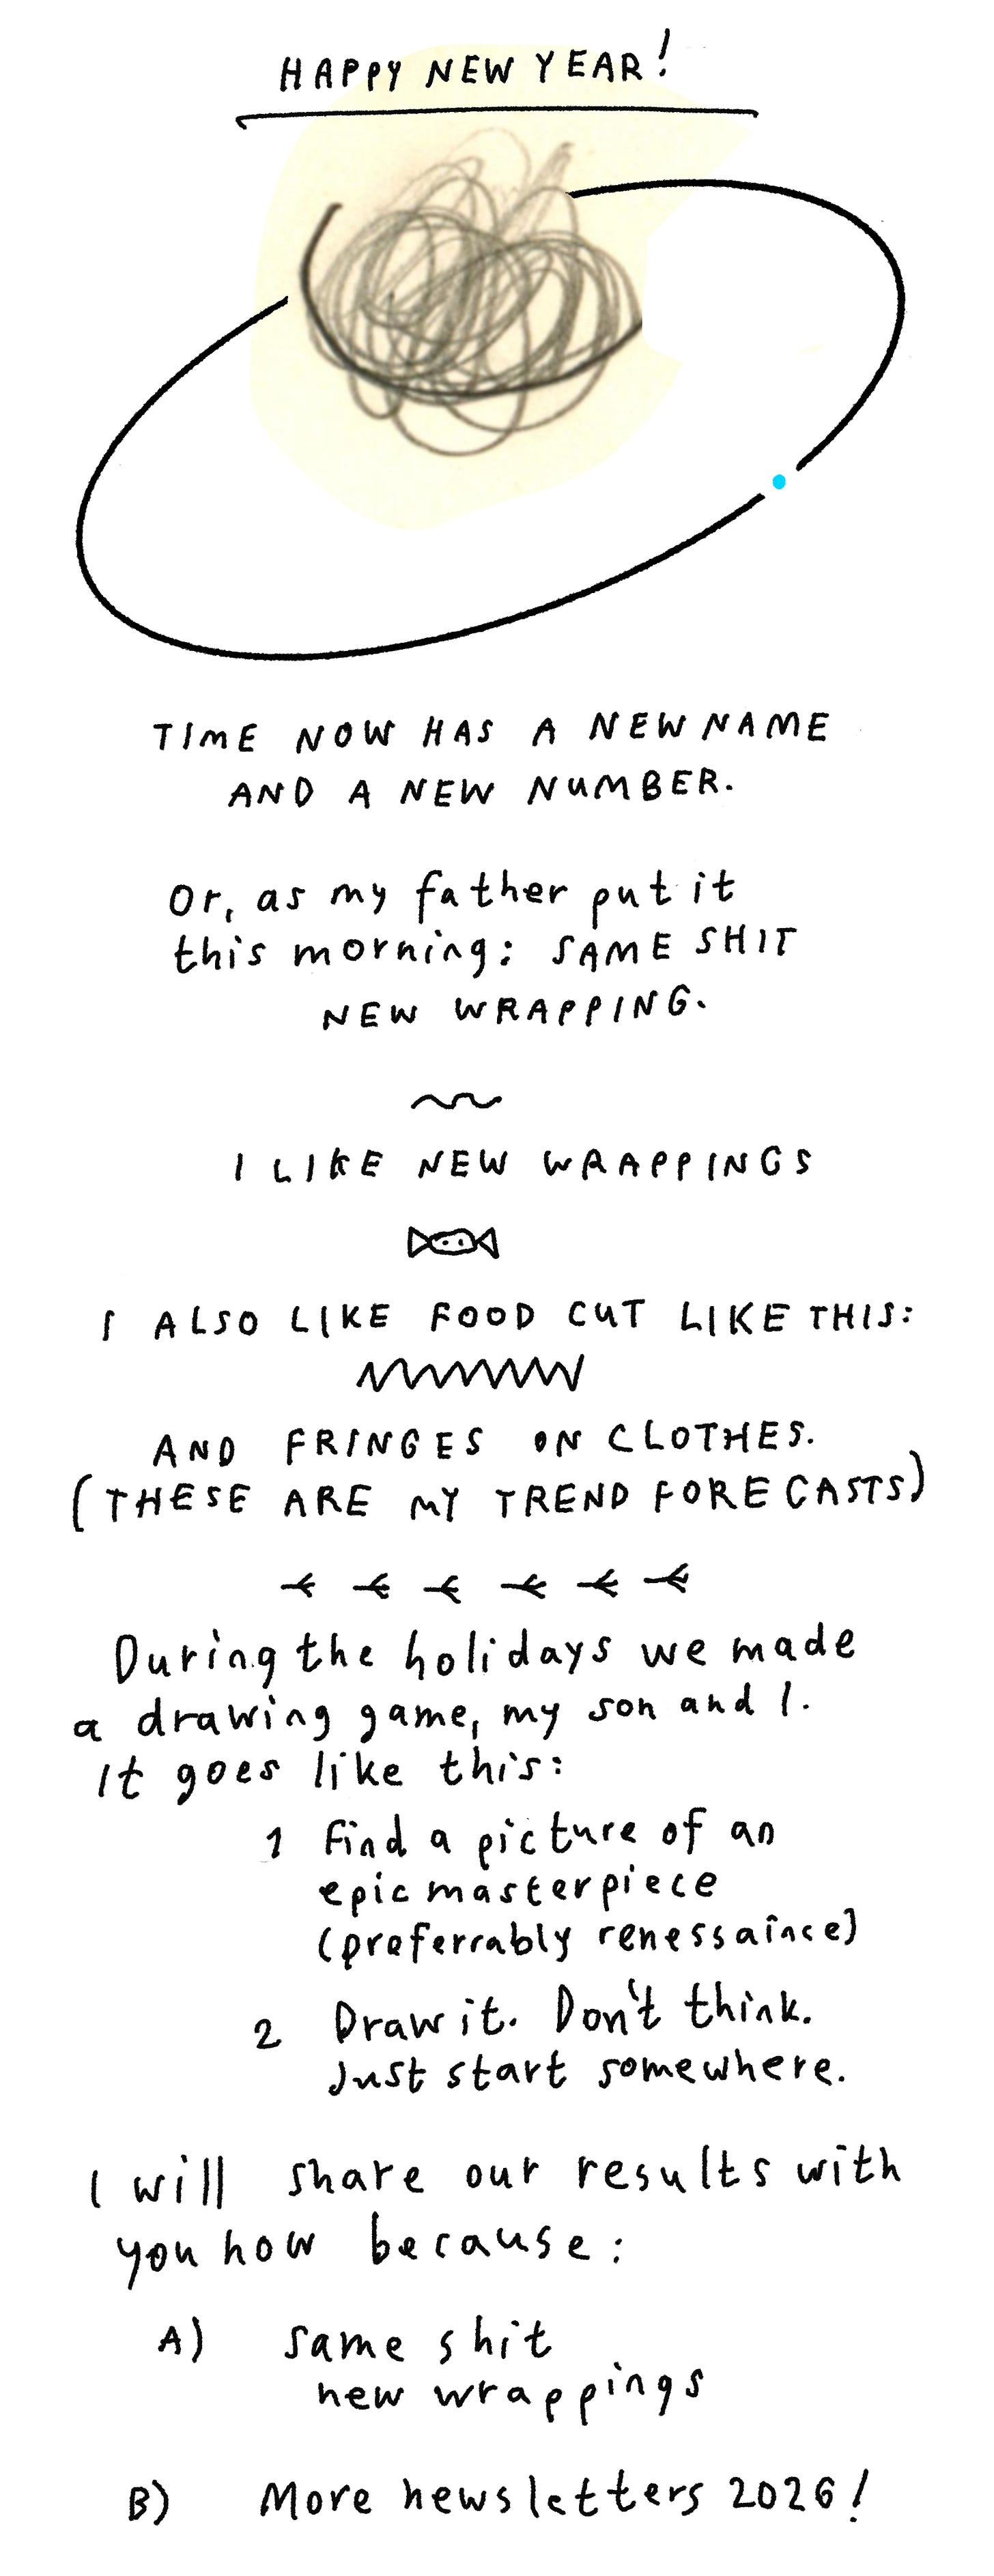 HAPPY NEW YEAR!
TIME NOW HAS A NEW NAME
AND A NEW NUMBER.
Or, as my father put it
this morning: SAME SHIT
NEW WRAPPING.
I LIKE NEW WRAPPINGS
I ALSO LIKE FOOD CUT LIKE THIS:
AND FRINGES ON CLOTHES.
(THESE ARE MY TREND FORECASTS)
During the holidays we made
a drawing game, my son and I.
It goes like this:
1 Find a picture of an
epic masterpiece
(preferrably renessaince)
2 Draw it. Don't think.
Just start somewhere.
I will share our results with
you now because:
A) same shit
new wrappings
B) More newsletters 2026!